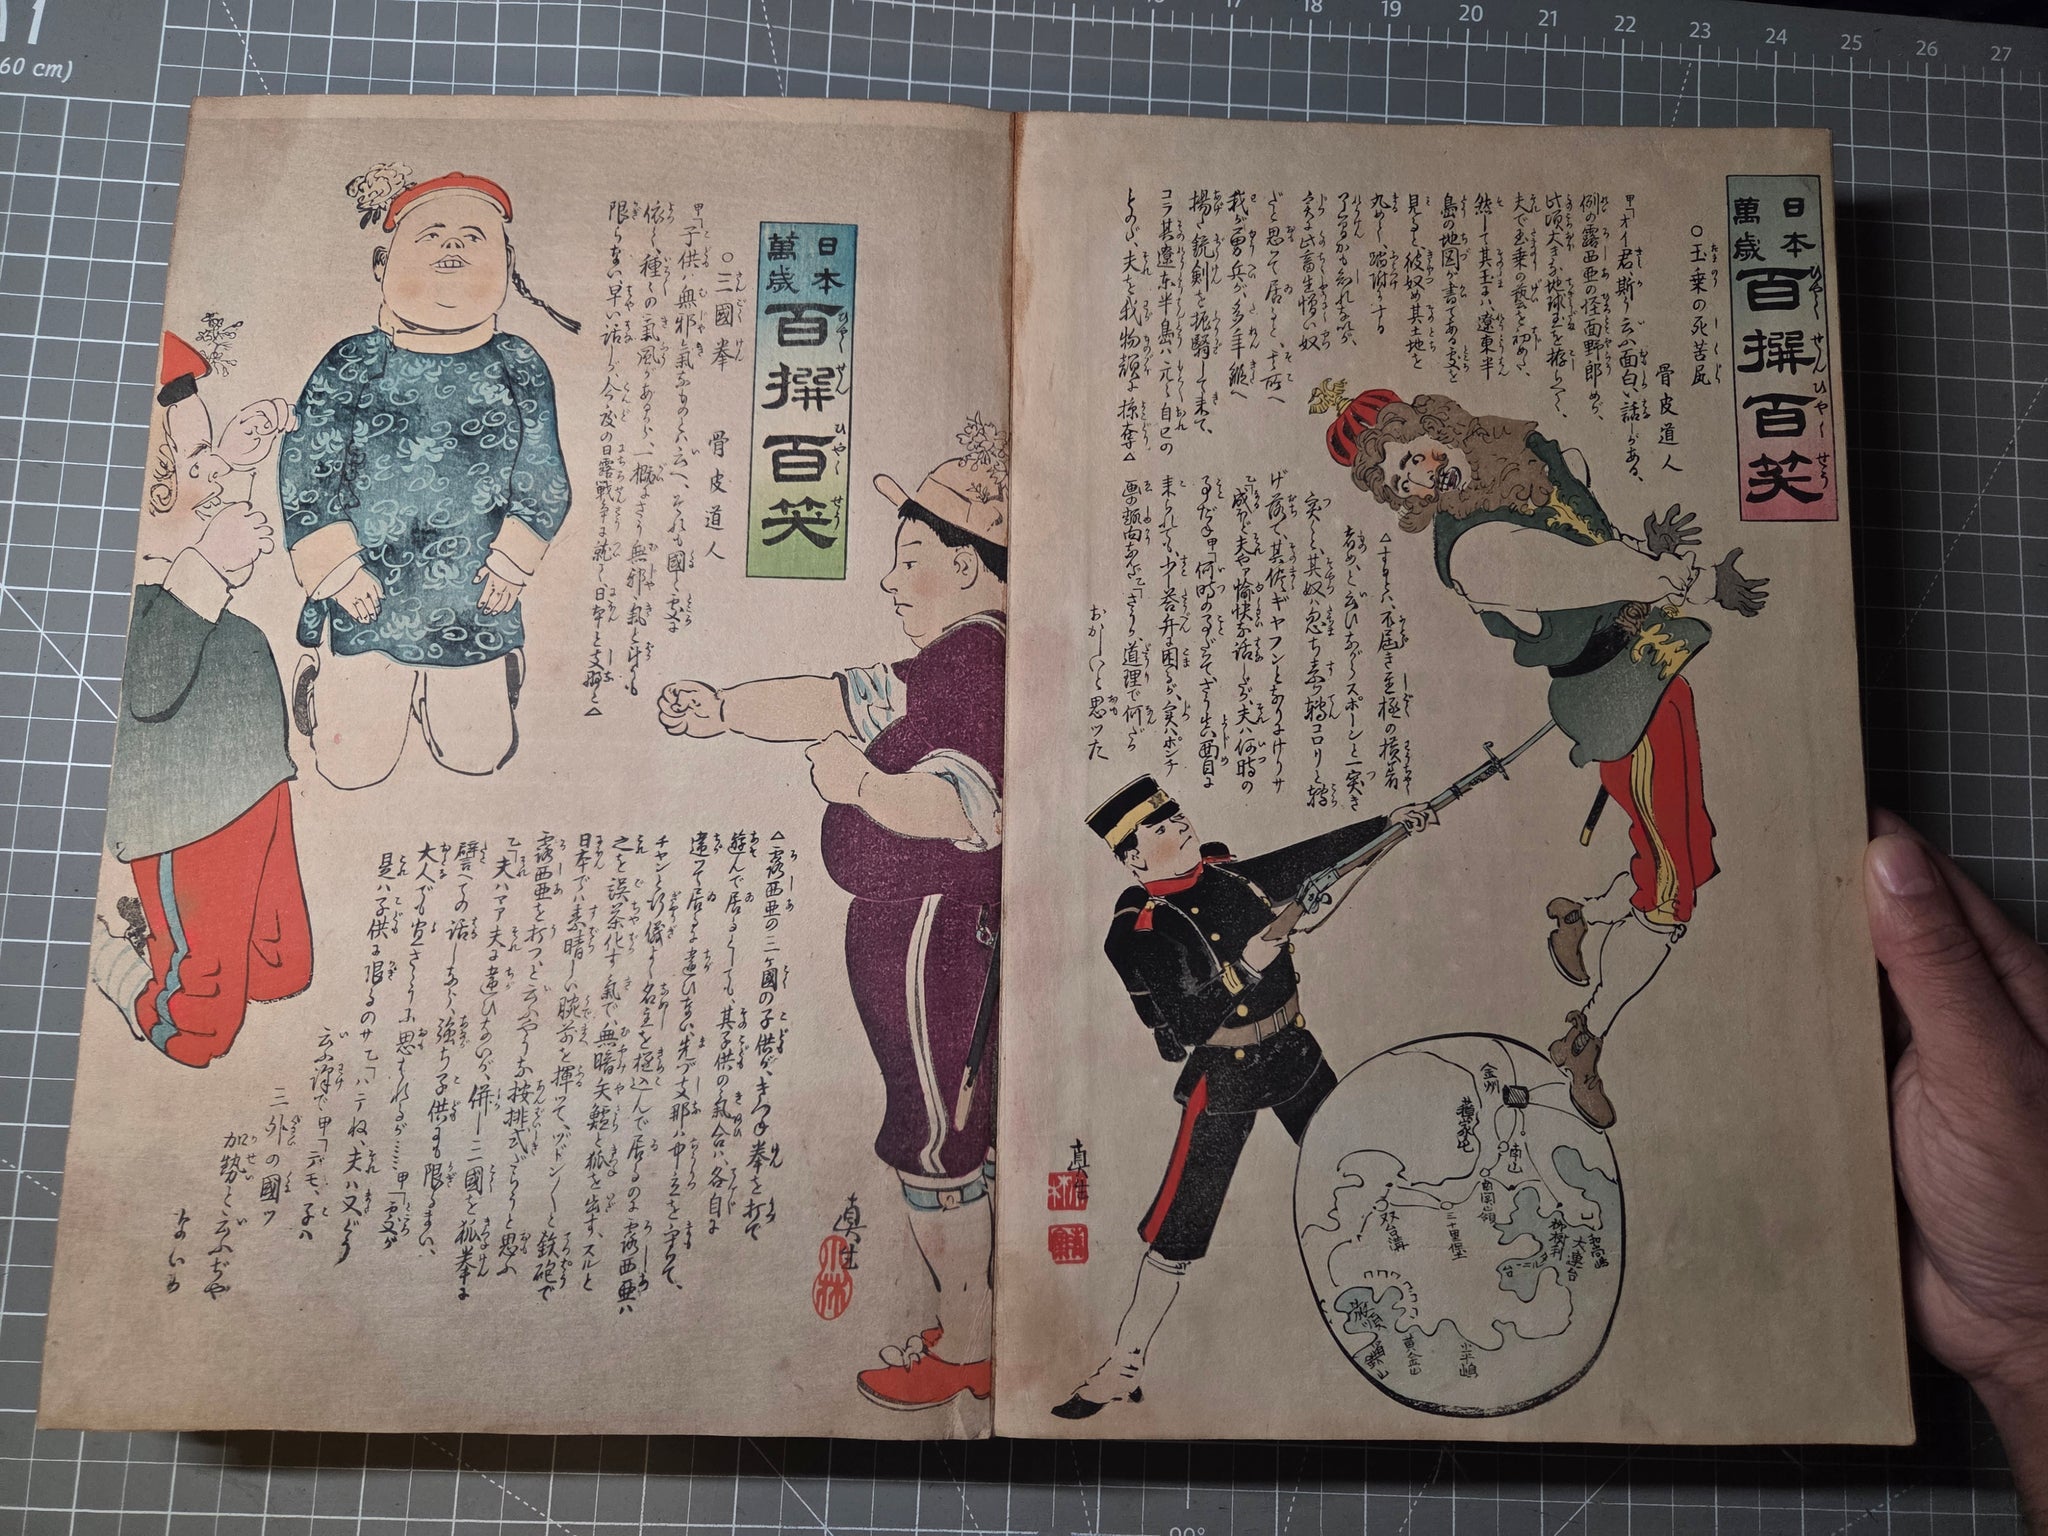 日本萬歳 百撰百笑
〇玉乗の死苦尻
骨皮道人
甲「オイ君、斯う云ふ面白い話しがある、
例の露西亜の怪面野郎めが、
此頃大きな地球玉を拵らへて、
夫で玉乗の藝を初めた、
然して其玉にハ、遼東半
島の地図が書てある處を
見ると、彼奴め其土地を
丸めて、踏潰す
実に此畜生憎い奴
だと思って居ると、其所へ
我が勇兵が、多年鍛へ
揚た銃剣を振翳して来て、
コラ其遼東半島ハ元と自己の
ものだ、夫を我物顔に掠奪△
△するとハ、不届き至極の横着
者め、と云ひながらスポーンと一突き
突くと、其奴ハ忽ち素ッ転コロリと転
げ落て、其侭ギャフンとなりにけりサ
乙「成ほど夫やア愉快な話しだが、夫ハ何時の
事だね甲「何時の事だッて、さう出ッ西目に
来られてハ、少し答弁に困るが、実ハポンチ
画の趣向なんだ乙「さうか、道理で何だか
おかしいと思ッた
真生
金州
南山
南関嶺
三十里堡
双台溝
柳樹利
大連台
和尚島
黄金山
小平嶋
日本萬歳 百撰百笑
〇三國拳
骨皮道人
甲「子供ハ無邪氣なものとハ云へ、それも國と處に
依て、種々の氣風があるから、一概にさう無邪氣と斗りも
限らない、早い話しが、今度の日露戦争に就て、日本と支那と△
△露西亜の三ヶ國の子供が、きつね拳を打て
遊んで居るとしても、其子供の氣合ハ、各自に
違ッて居るに違ひない、先づ支那ハ中立を守ッて、
チャンと行儀よく名主を極込んで居るのに露西亜ハ
之を誤茶化す氣で、無暗矢鱈と狐を出す、スルと
日本でハ素晴しい腕前を揮ッて、ヅドン〳〵と鉄砲で
露西亜を打つ、と云ふやうな按排式だらうと思ふ
乙「夫ハマア夫に違ひないが、併し三國を狐拳に
譬へての話しなら、強ち子供にも限るまい、
大人でも宜さゝうに思ハれるが……甲「處が
是ハ子供に限るのサ乙「ハテね、夫ハ又どう
云ふ訳で甲「デモ、子ハ
三外の國ッ
加勢と云ふぢや
ないか
真生
小林